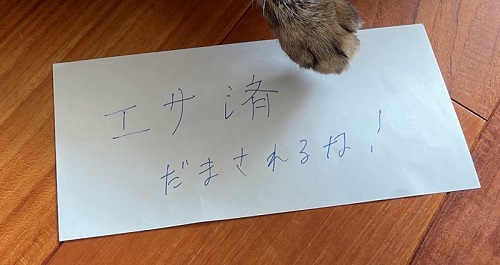 エサ済
だまされるな!